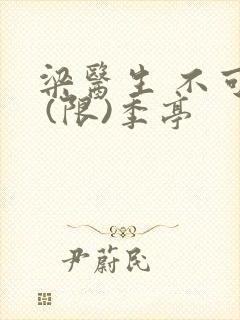 梁醫生 不可
(限)季亭
尹蔚民